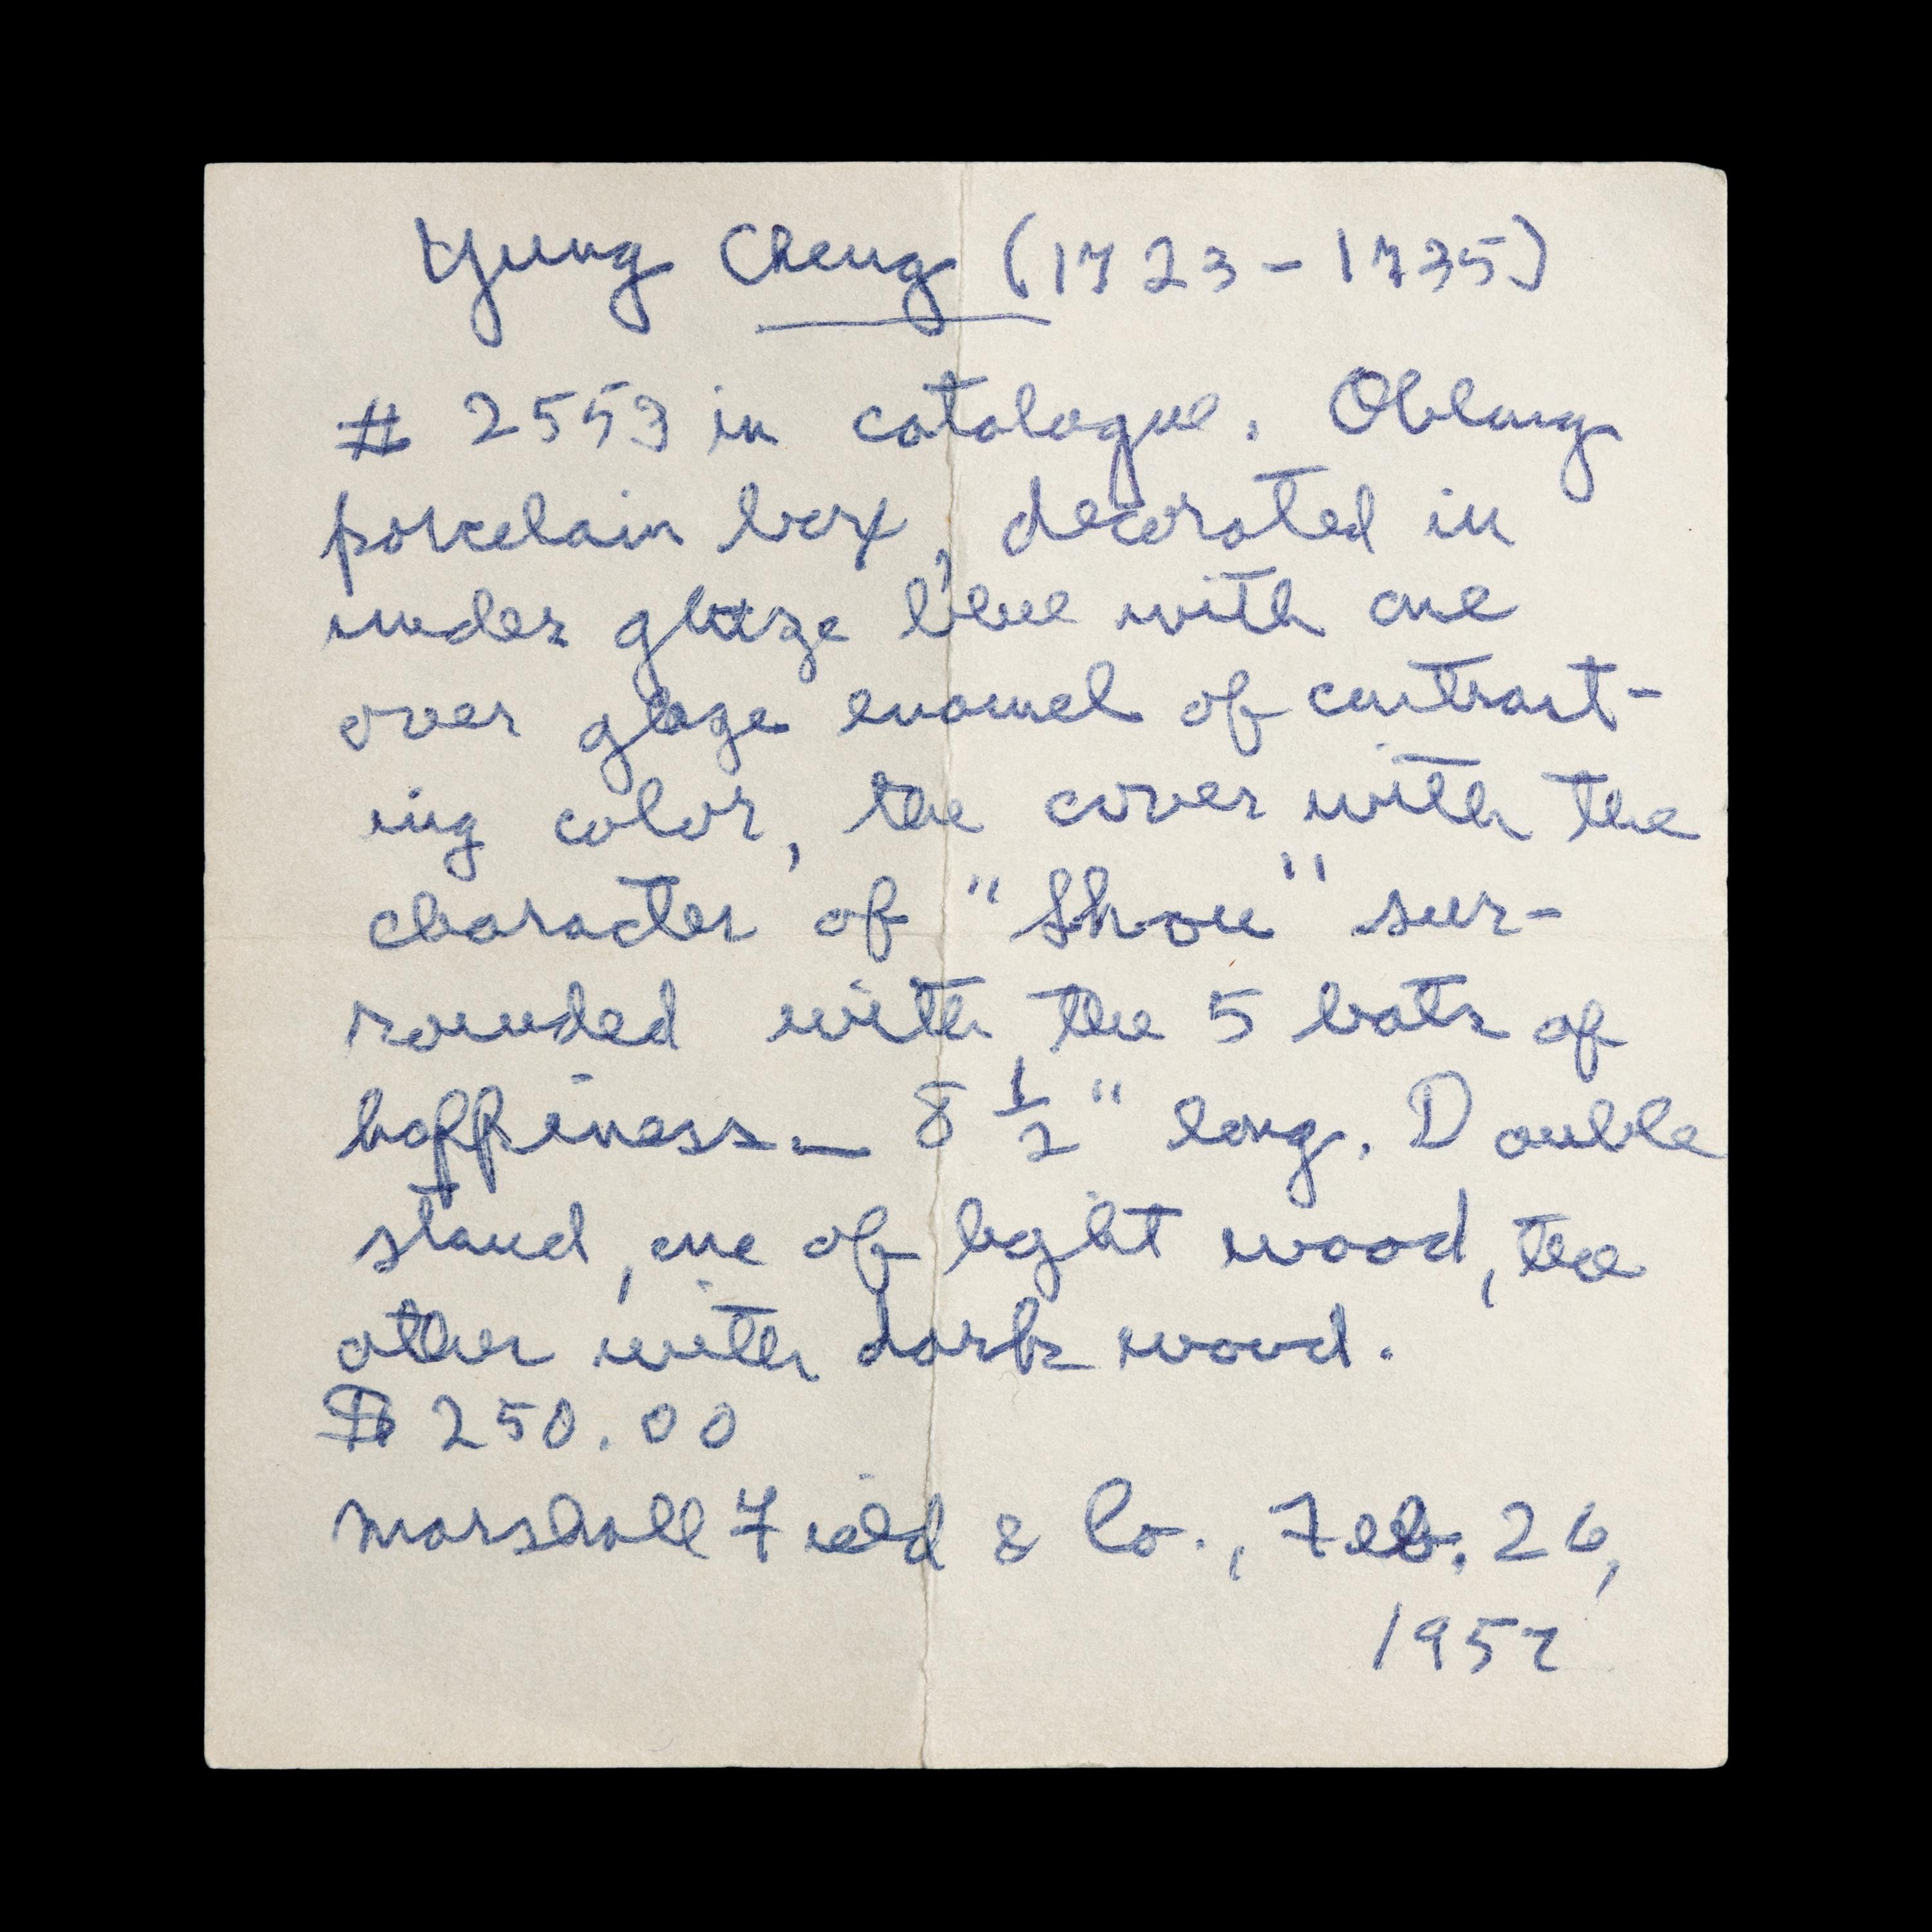 Yung Cheng (1723-1735)
# 2553 in catalogue. Oblong
porcelain box, decorated in
under glaze blue with one
over glaze enamel of contrast-
ing color, the cover with the
character of "Shou" sur-
rounded with the 5 bats of
happiness._ 8 1/2" long. Double
stand, one of light wood, the
other with dark wood.
$250.00
Marshall Field & Co., Feb. 26,
1952